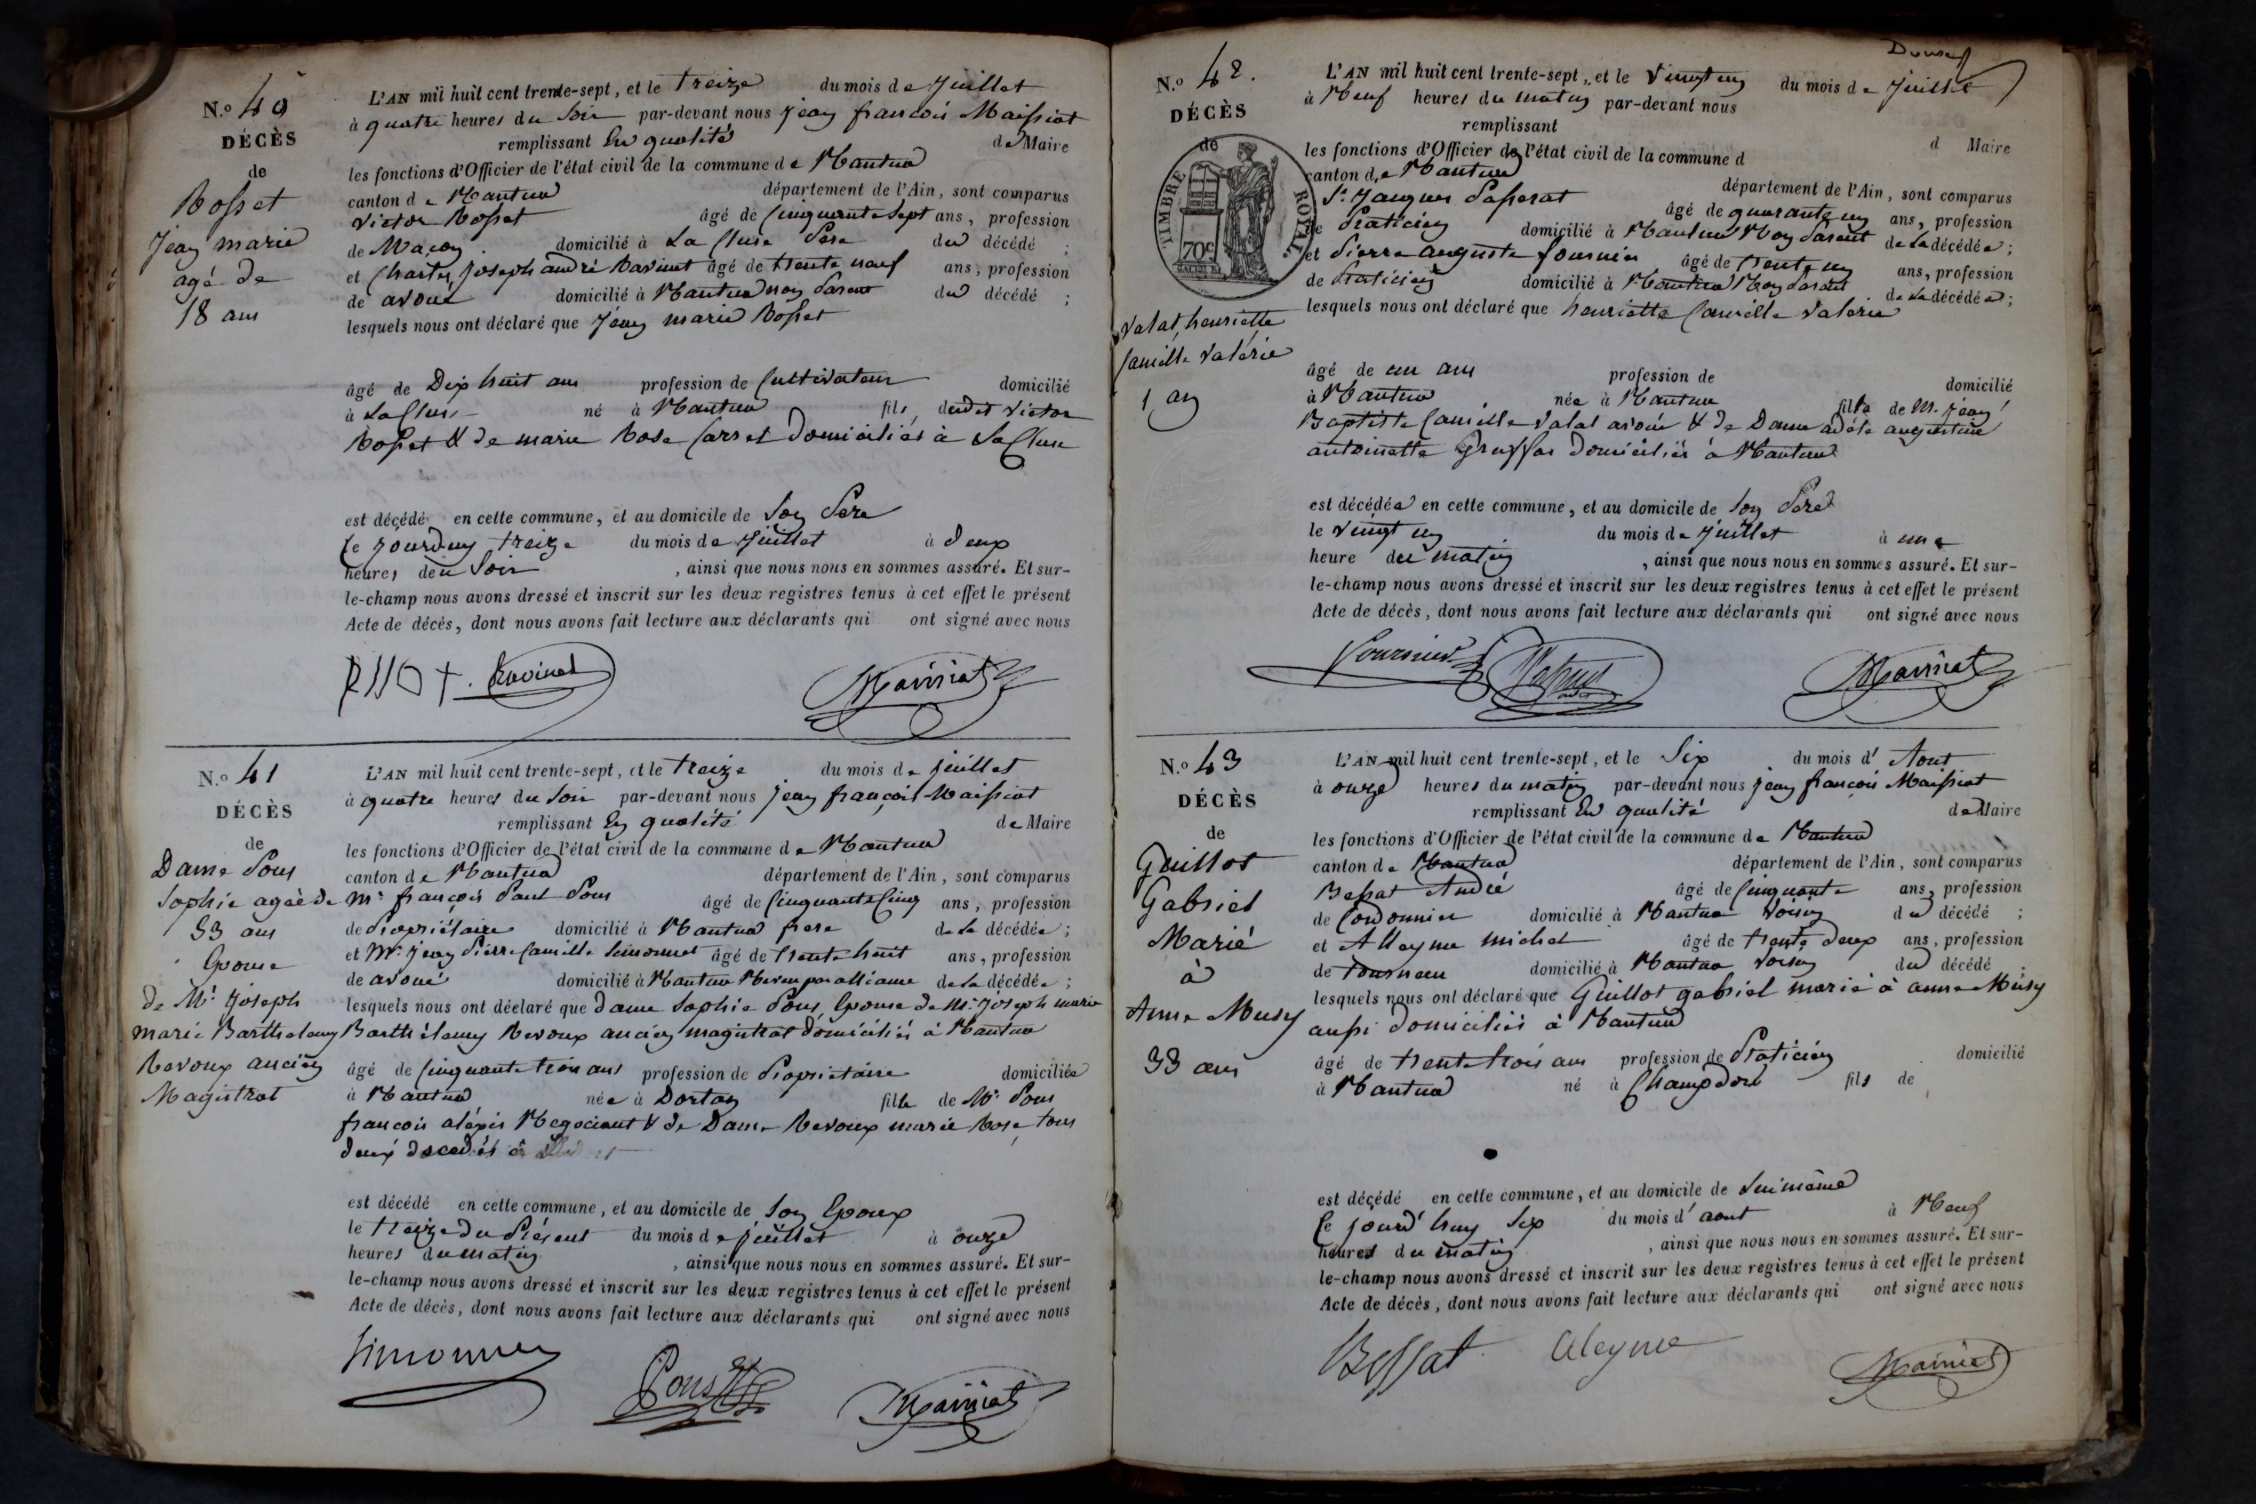 N.o 40
DÉCÈS
de
Rosset
Jean marie
agé de
18 ans
L'AN mil huit cent trente-sept, et le treize du mois de Juillet
à quatre heures du Soir par-devant nous Jean françois Maissiat
remplissant En qualité de Maire
les fonctions d'Officier de l'état civil de la commune de Nantua
canton de Nantua département de l'Ain, sont comparus
Victor Rosset âgé de Cinquante Sept ans, profession
de Maçon domicilié à La Cluse Père du décédé ;
et Charles Joseph andré Ravinet âgé de trente neuf ans, profession
de avoué domicilié à Nantua non Parent du décédé ;
lesquels nous ont déclaré que Jean marie Rosset
âgé de Dix huit ans profession de Cultivateur domicilié
à La Cluse né à Nantua fils dudit Victor
Rosset & de marie Rose Carret Domiciliés à La Cluse
est décédé en cette commune, et au domicile de Son Père
le jourd'huy treize du mois de Juillet à deux
heures du Soir , ainsi que nous nous en sommes assuré. Et sur-
le-champ nous avons dressé et inscrit sur les deux registres tenus à cet effet le présent
Acte de décès, dont nous avons fait lecture aux déclarants qui ont signé avec nous
Ravinet Maissiat
N.o 41
DÉCÈS
de
Dame Pons
Sophie agée de
53 ans
Epouse
de Mr Joseph
marie Barthelemy
Revoux ancien
Magistrat
L'AN mil huit cent trente-sept, et le treize du mois de juillet
à quatre heures du Soir par-devant nous Jean françois Maissiat
remplissant En qualité de Maire
les fonctions d'Officier de l'état civil de la commune de Nantua
canton de Nantua département de l'Ain, sont comparus
Mr françois Paul Pons âgé de Cinquante Cinq ans, profession
de Propriétaire domicilié à Nantua frere de la décédée ;
et Mr Jean Pierre Camille Simonnet âgé de trente huit ans, profession
de avoué domicilié à Nantua Neveu par alliance de la décédée ;
lesquels nous ont déclaré que dame Sophie Pons Epouse de Mr Joseph marie
Barthélemy Revoux ancien magistrat domiciliés à Nantua
âgé de Cinquante trois ans profession de Propriétaire domiciliée
à Nantua née à Dortan fille de Mr Pons
françois aléxis Negociant & de Dame Revoux marie Rose tous
deux décedés à
est décédé en cette commune, et au domicile de Son Epoux
le treize du Présent du mois de juillet à onze
heures du matin , ainsi que nous nous en sommes assuré. Et sur-
le-champ nous avons dressé et inscrit sur les deux registres tenus à cet effet le présent
Acte de décès, dont nous avons fait lecture aux déclarants qui ont signé avec nous
Simonnet Pons Maissiat
N.o 42.
DÉCÈS
de
TIMBRE ROYAL
70c
Valat, henriette
Camille Valérie
1 an
L'AN mil huit cent trente-sept, et le vingt un du mois de Juillet
à Neuf heures du matin par-devant nous
remplissant d Maire
les fonctions d'Officier de l'état civil de la commune d
canton de Nantua département de l'Ain, sont comparus
Sr Jacques Passerat âgé de quarante un ans, profession
de Praticien domicilié à Nantua Non Parent de la décédée ;
et Pierre auguste fournier âgé de trente un ans, profession
de Praticien domicilié à Nantua Non Parent de la décédée ;
lesquels nous ont déclaré que henriette Camille Valérie
âgé de un ans profession de domicilié
à Nantua née à Nantua fille de Mr Jean
Baptiste Camille Valat avoué & de Dame adèle augustine
antoinette Gruffas Domiciliés à Nantua
est décédée en cette commune, et au domicile de Son Père
le vingt un du mois de Juillet à une
heure du matin , ainsi que nous nous en sommes assuré. Et sur-
le-champ nous avons dressé et inscrit sur les deux registres tenus à cet effet le présent
Acte de décès, dont nous avons fait lecture aux déclarants qui ont signé avec nous
Fournier Maissiat
N.o 43
DÉCÈS
de
Guillot
Gabriel
Marié
à
Anne Musy
33 ans
L'AN mil huit cent trente-sept, et le Six du mois d' Aout
à onze heures du matin par-devant nous jean françois Maissiat
remplissant En qualité de Maire
les fonctions d'Officier de l'état civil de la commune de Nantua
canton de Nantua département de l'Ain, sont comparus
Bessat André âgé de Cinquante ans, profession
de Cordonnier domicilié à Nantua Voisin du décédé ;
et Alleyme michel âgé de trente deux ans, profession
de tourneur domicilié à Nantua Voisin du décédé ;
lesquels nous ont déclaré que Guillot gabriel marié à anne Musy
aussi domiciliés à Nantua
âgé de trente trois ans profession de Praticien domicilié
à Nantua né à Champdor fils de
est décédé en cette commune, et au domicile de Lui même
le jourd'huy Six du mois d' aout à Neuf
heures du matin , ainsi que nous nous en sommes assuré. Et sur-
le-champ nous avons dressé et inscrit sur les deux registres tenus à cet effet le présent
Acte de décès, dont nous avons fait lecture aux déclarants qui ont signé avec nous
Bessat Aleyme Maissiat